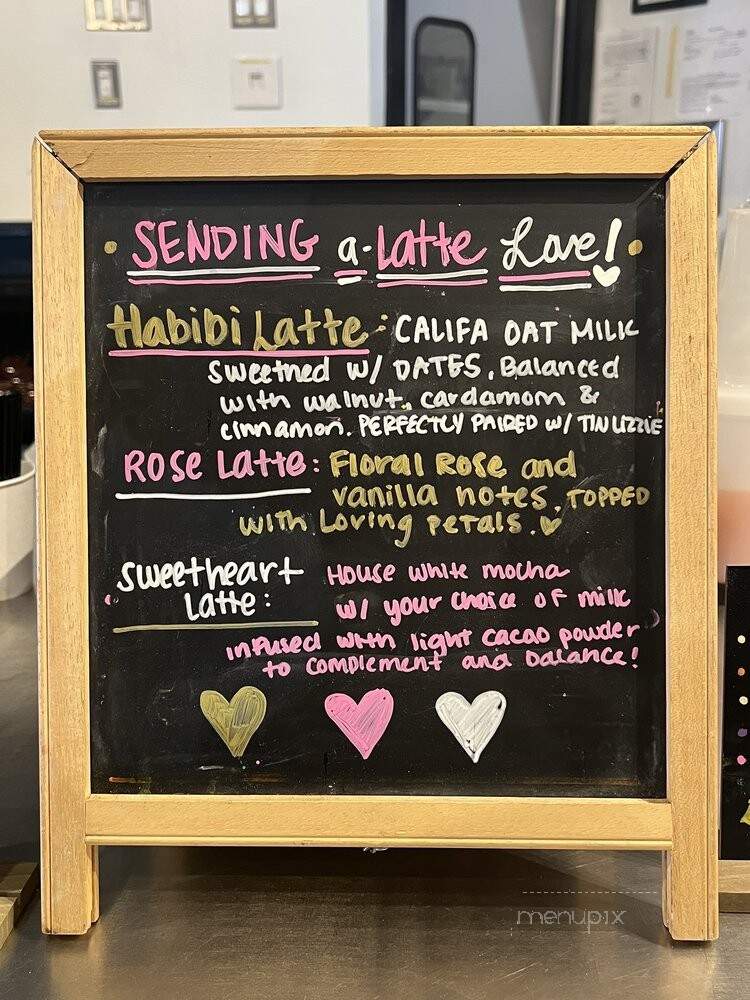 SENDING a-Latte Love!
Habibi Latte: CALIFA OAT MILK
sweetned w/ DATES. Balanced
with walnut, cardamom &
cinnamon. PERFECTLY PAIRED w/ TIN LIZZIE
ROSE LATTE: Floral Rose and
vanilla notes. TOPPED
with Loving petals.
sweetheart House white mocha
Latte: w/ your choice of milk
infused with light cacao powder
to complement and balance!
menupix